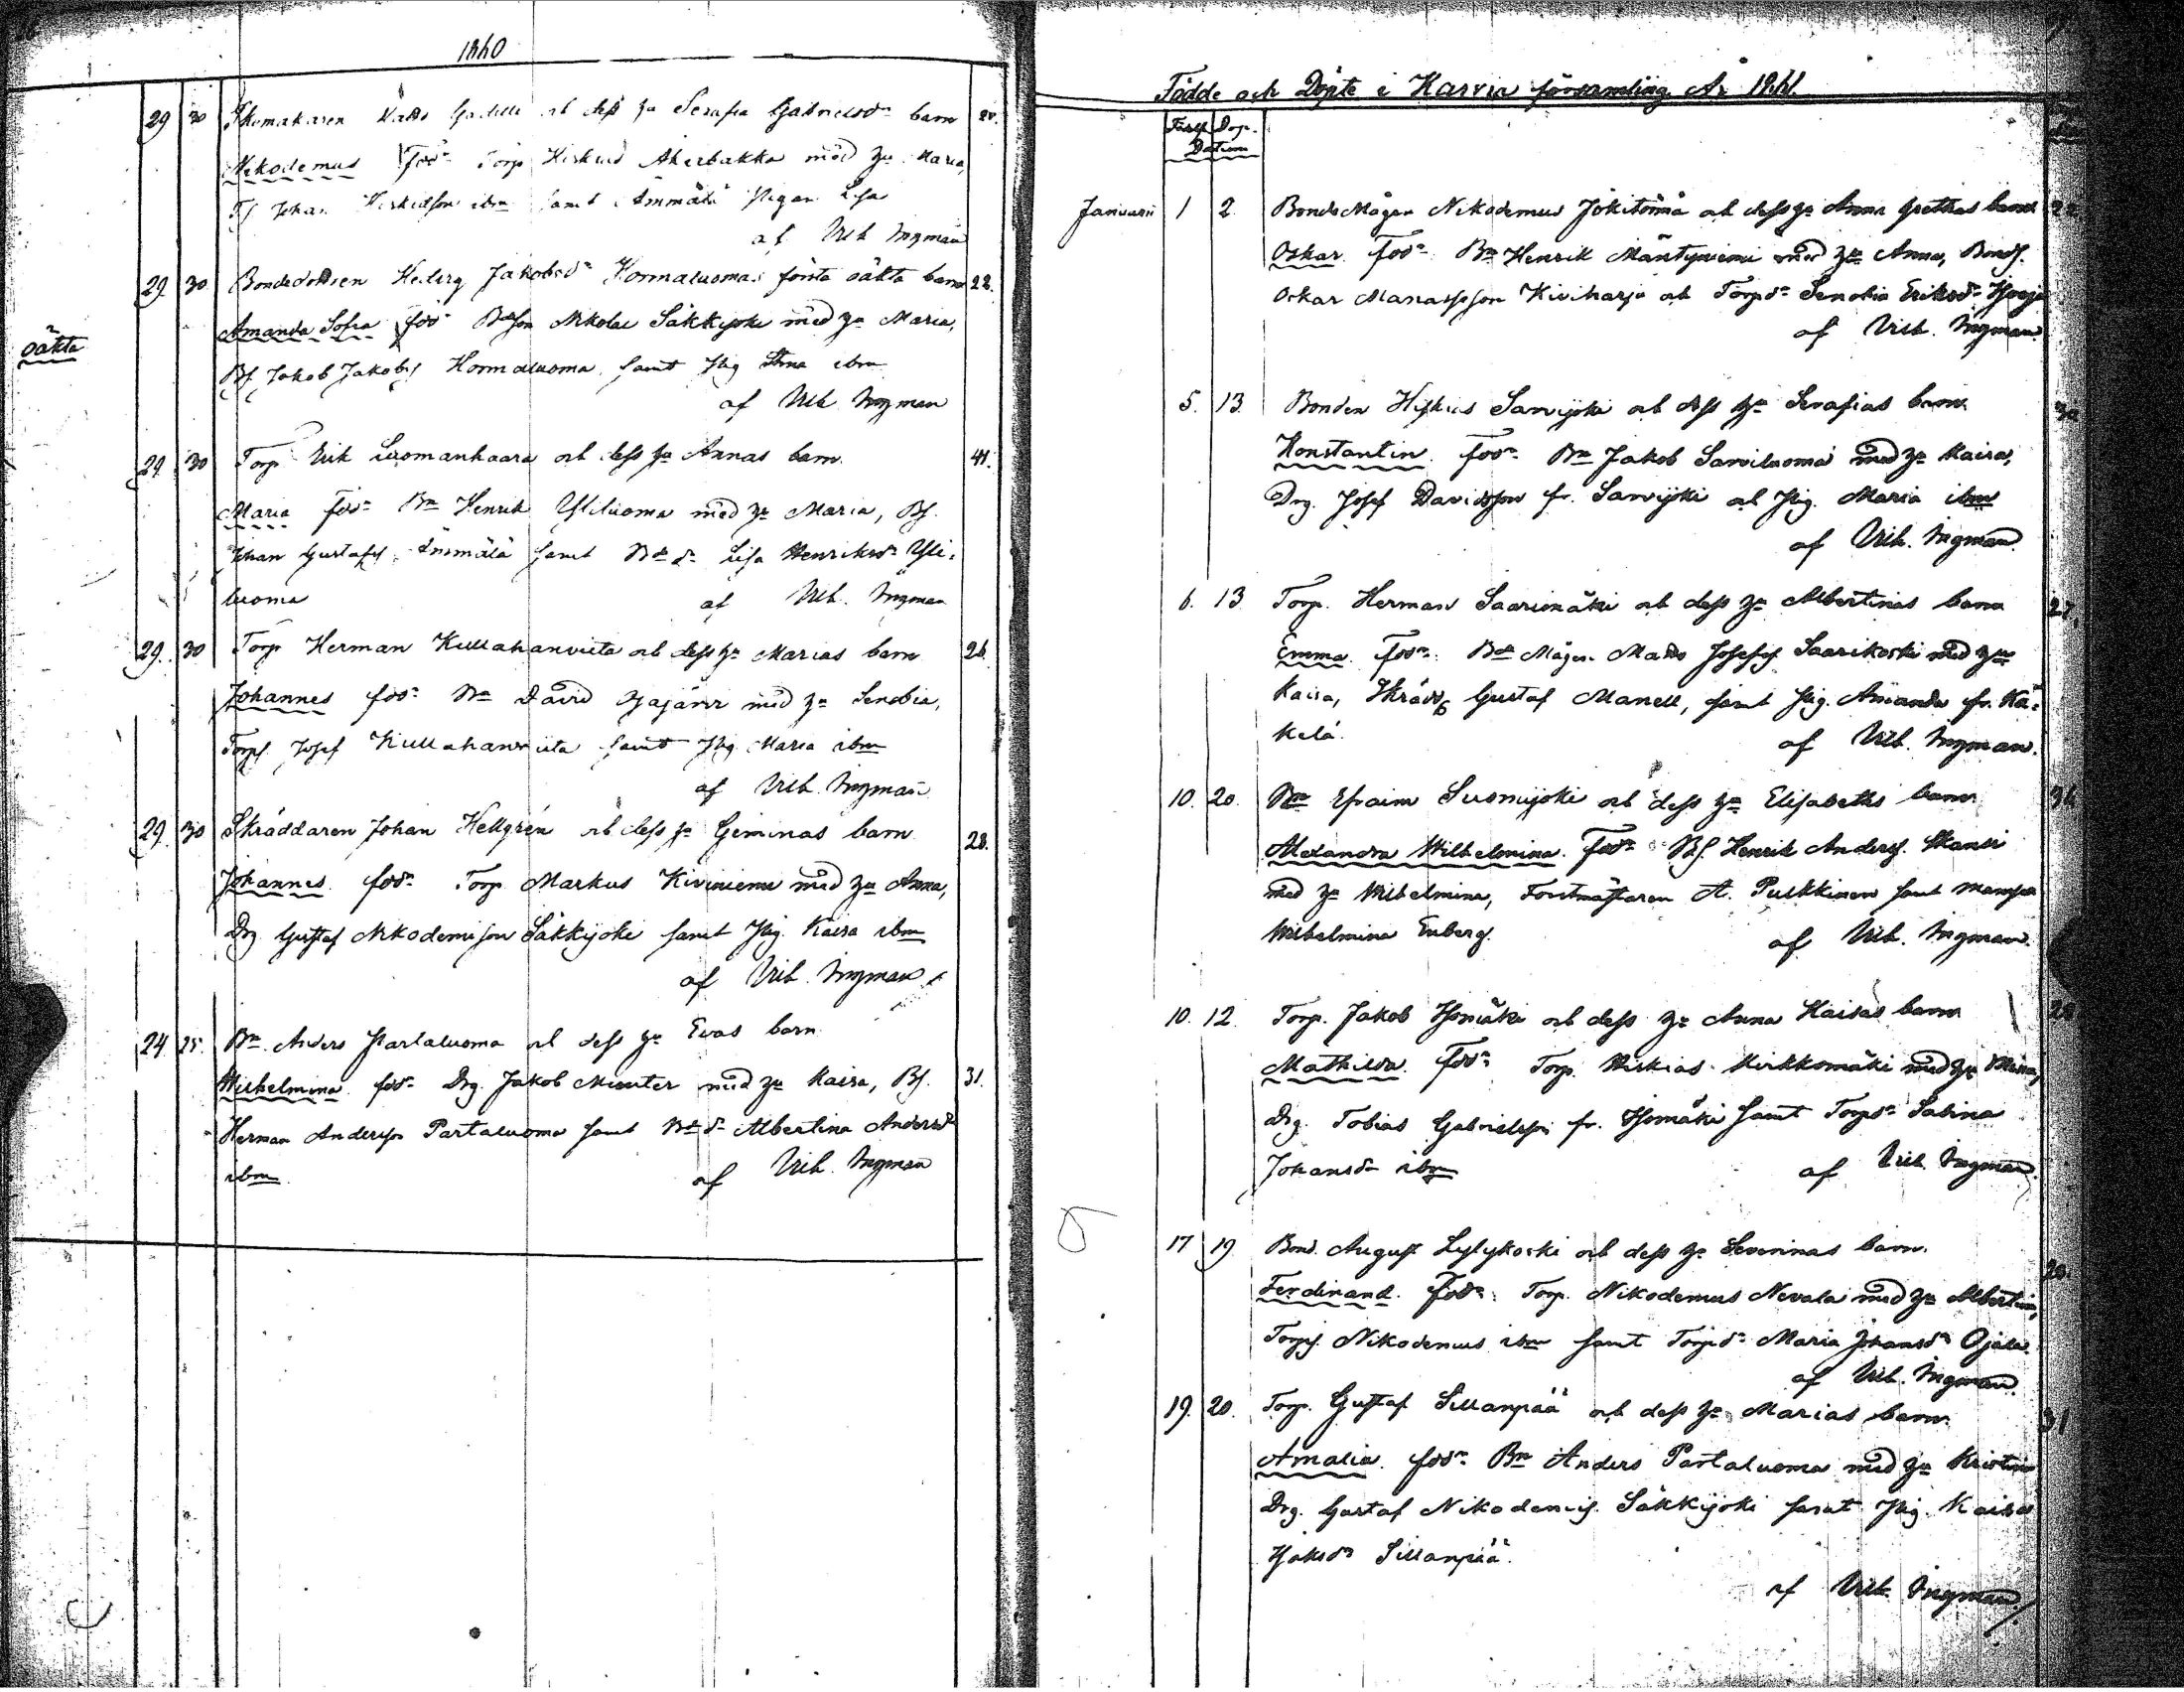 1860
29 30 Skomakaren Mats Gadelli och dess hu Serafia Gabrielsdr barn
Nikodemus fadr Torp Hiskias Akerbakka med hu Maria,
Ts Johan Hiskiasson ibm samt Ämmälä Pigan Lisa
af Vieb. Ingman
29 30 Bondedottren Hedvig Jakobsdr Honnaluomas första oäkta barn 22.
oäkta
Amanda Sofia fadr Bdeson Nikolai Säkkijoki med hu Maria,
Bs. Jakob Jakobss Honnaluoma samt Pig ibm
af Vieb. Ingman
29 30 Torp Erik Luomanhaara och dess hu Annas barn. 41.
Maria fadr Bn Henrik Yliluoma med hu Maria, Bs.
Johan Gustafss Ämmälä samt Bdedr Lisa Henriksdr Yli-
luoma af Vieb. Ingman
29. 30 Torp Herman Kullahanviita och dess hu Marias barn 26.
Johannes fadr Bn David Ojajärvi med hu Senobia,
Torps. Josef Kullahanviita samt Pig Maria ibm
af Vieb. Ingman
29. 30 Skräddaren Johan Hellgrén och dess hu Geminas barn 28.
Johannes. fadr Torp. Markus Kiviniemi med hu Anna,
Drg Gustaf Nikodemisson Säkkijoki samt Pig. Kaisa ibm
af Vieb. Ingman
24. 25. Bn. Anders Partaluoma och dess hu Evas barn
Wilhelmina fadr Drg. Jakob Munter med hu Kaisa, Bs. 31.
Herman Andersson Partaluoma samt Bdedr Albertina Andersdr
ibm. af Vieb. Ingman
Födde och Döpte i Karvia församling År 1861.
Född Dop.
Datum
Januarii 1 2. BondeMågen Nikodemus Jokitörmä och dess hu Anna Grethas barn
Oskar. fadr Bn Henrik Mäntyniemi med hu Anna, Bonds.
Oskar Manasseson Kiviharju och Torpdr Senobia Eriksdr
af Vieb. Ingman.
5. 13. Bonden Hiskias Sarvijoki och dess hu Serafias barn.
Konstantin. fadr Bn Jakob Sarviluoma med hu Kaisa,
Drg. Josef Davidsson fr. Sarvijoki och Pig. Maria ibm
af Vieb. Ingman.
6. 13 Torp. Herman Saarimäki och dess hu Albertinas barn 27.
Emma. fadr Bde Mågen Matts Josefss Saarikoski med hu
Kaisa, Skrädd. Gustaf Manell, samt Pig. Amanda fr. Kä-
kelä. af Vieb. Ingman.
10. 20. Bn Efraim Suomijoki och dess hu Elisabeths barn
Alexandra Wilhelmina. fadr Bs. Henrik Anderss. Skantsi
med hu Wilhelmina, Forstmästaren A. Pulkkinen samt Mamsell
Wilhelmina Enberg. af Vieb. Ingman.
10. 12. Torp. Jakob Isomäki och dess hu Anna Kaisas barn
Mathilda. fadr Torp. Hiskias Kirkkomäki med hu Miina,
Drg. Tobias Gabrielsson fr. Isomäki samt Torpdr Sabina
Johansdr ibm af Vieb. Ingman.
17 19 Bond. August Lylykoski och dess hu Severinas barn.
Ferdinand. fadr Torp. Nikodemus Nevala med hu Albertina,
Torps. Nikodemus ibm samt Torpdr Maria Johansdr Ojala.
af Vieb. Ingman.
19. 20. Torp. Gustaf Sillanpää och dess hu Marias barn. 31
Amalia. fadr Bn Anders Partaluoma med hu Kristina
Drg. Gustaf Nikodemiss. Säkkijoki samt Pig. Kaisa
Isaksdr Sillanpää.
af Vieb. Ingman.